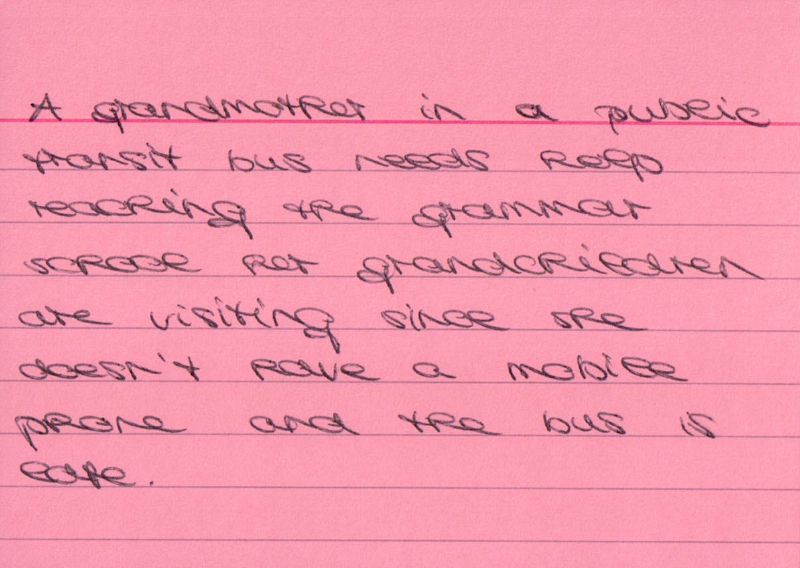 A grandmother in a public
transit bus needs help
reaching the grammar
school her grandchildren
are visiting since she
doesn't have a mobile
phone and the bus is
late.